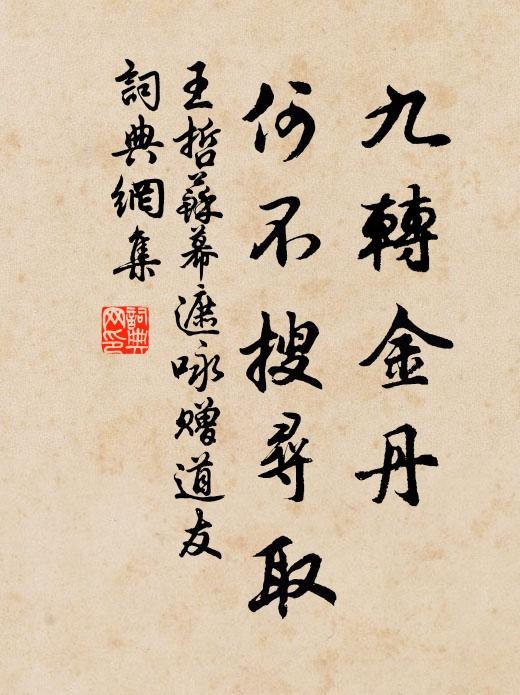 九轉金丹
何不搜尋取
王哲蘇幕遮咏贈道友
詞典網集
詞典网印